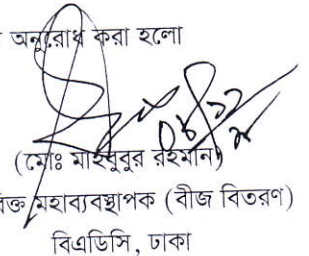 অনুরোধ করা হলো
(মোঃ মাহবুবুর রহমান)
মহাব্যবস্থাপক (বীজ বিতরণ)
বিএডিসি, ঢাকা